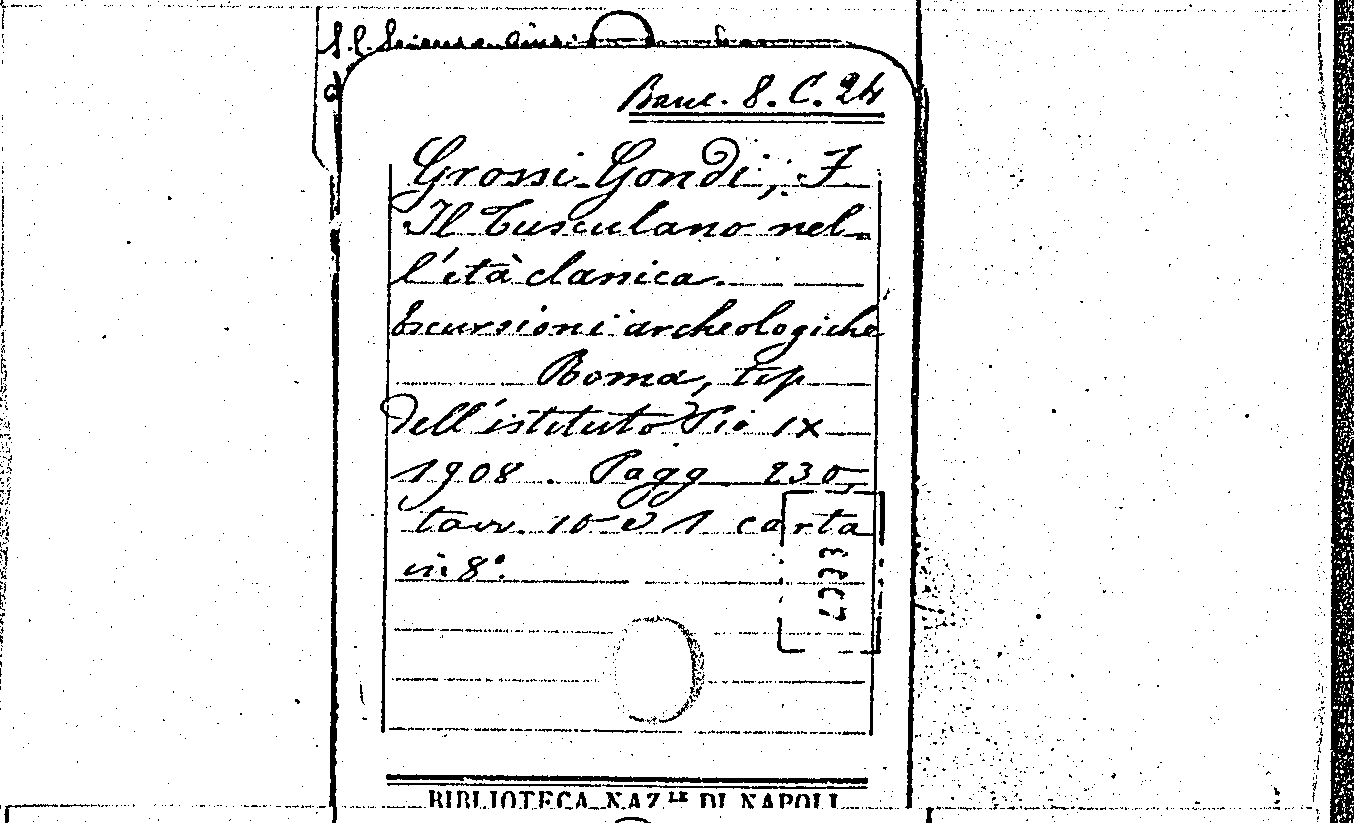 Banc. 8. C. 24
Grossi-Gondi, F
Il Tusculano nel-
l'età classica.
Escursioni archeologiche
Roma, tip
dell'istituto Pio IX
1908. Pagg 230,
tavv. 10 e 1 carta
in 8°.
BIBLIOTECA NAZ.LE DI NAPOLI